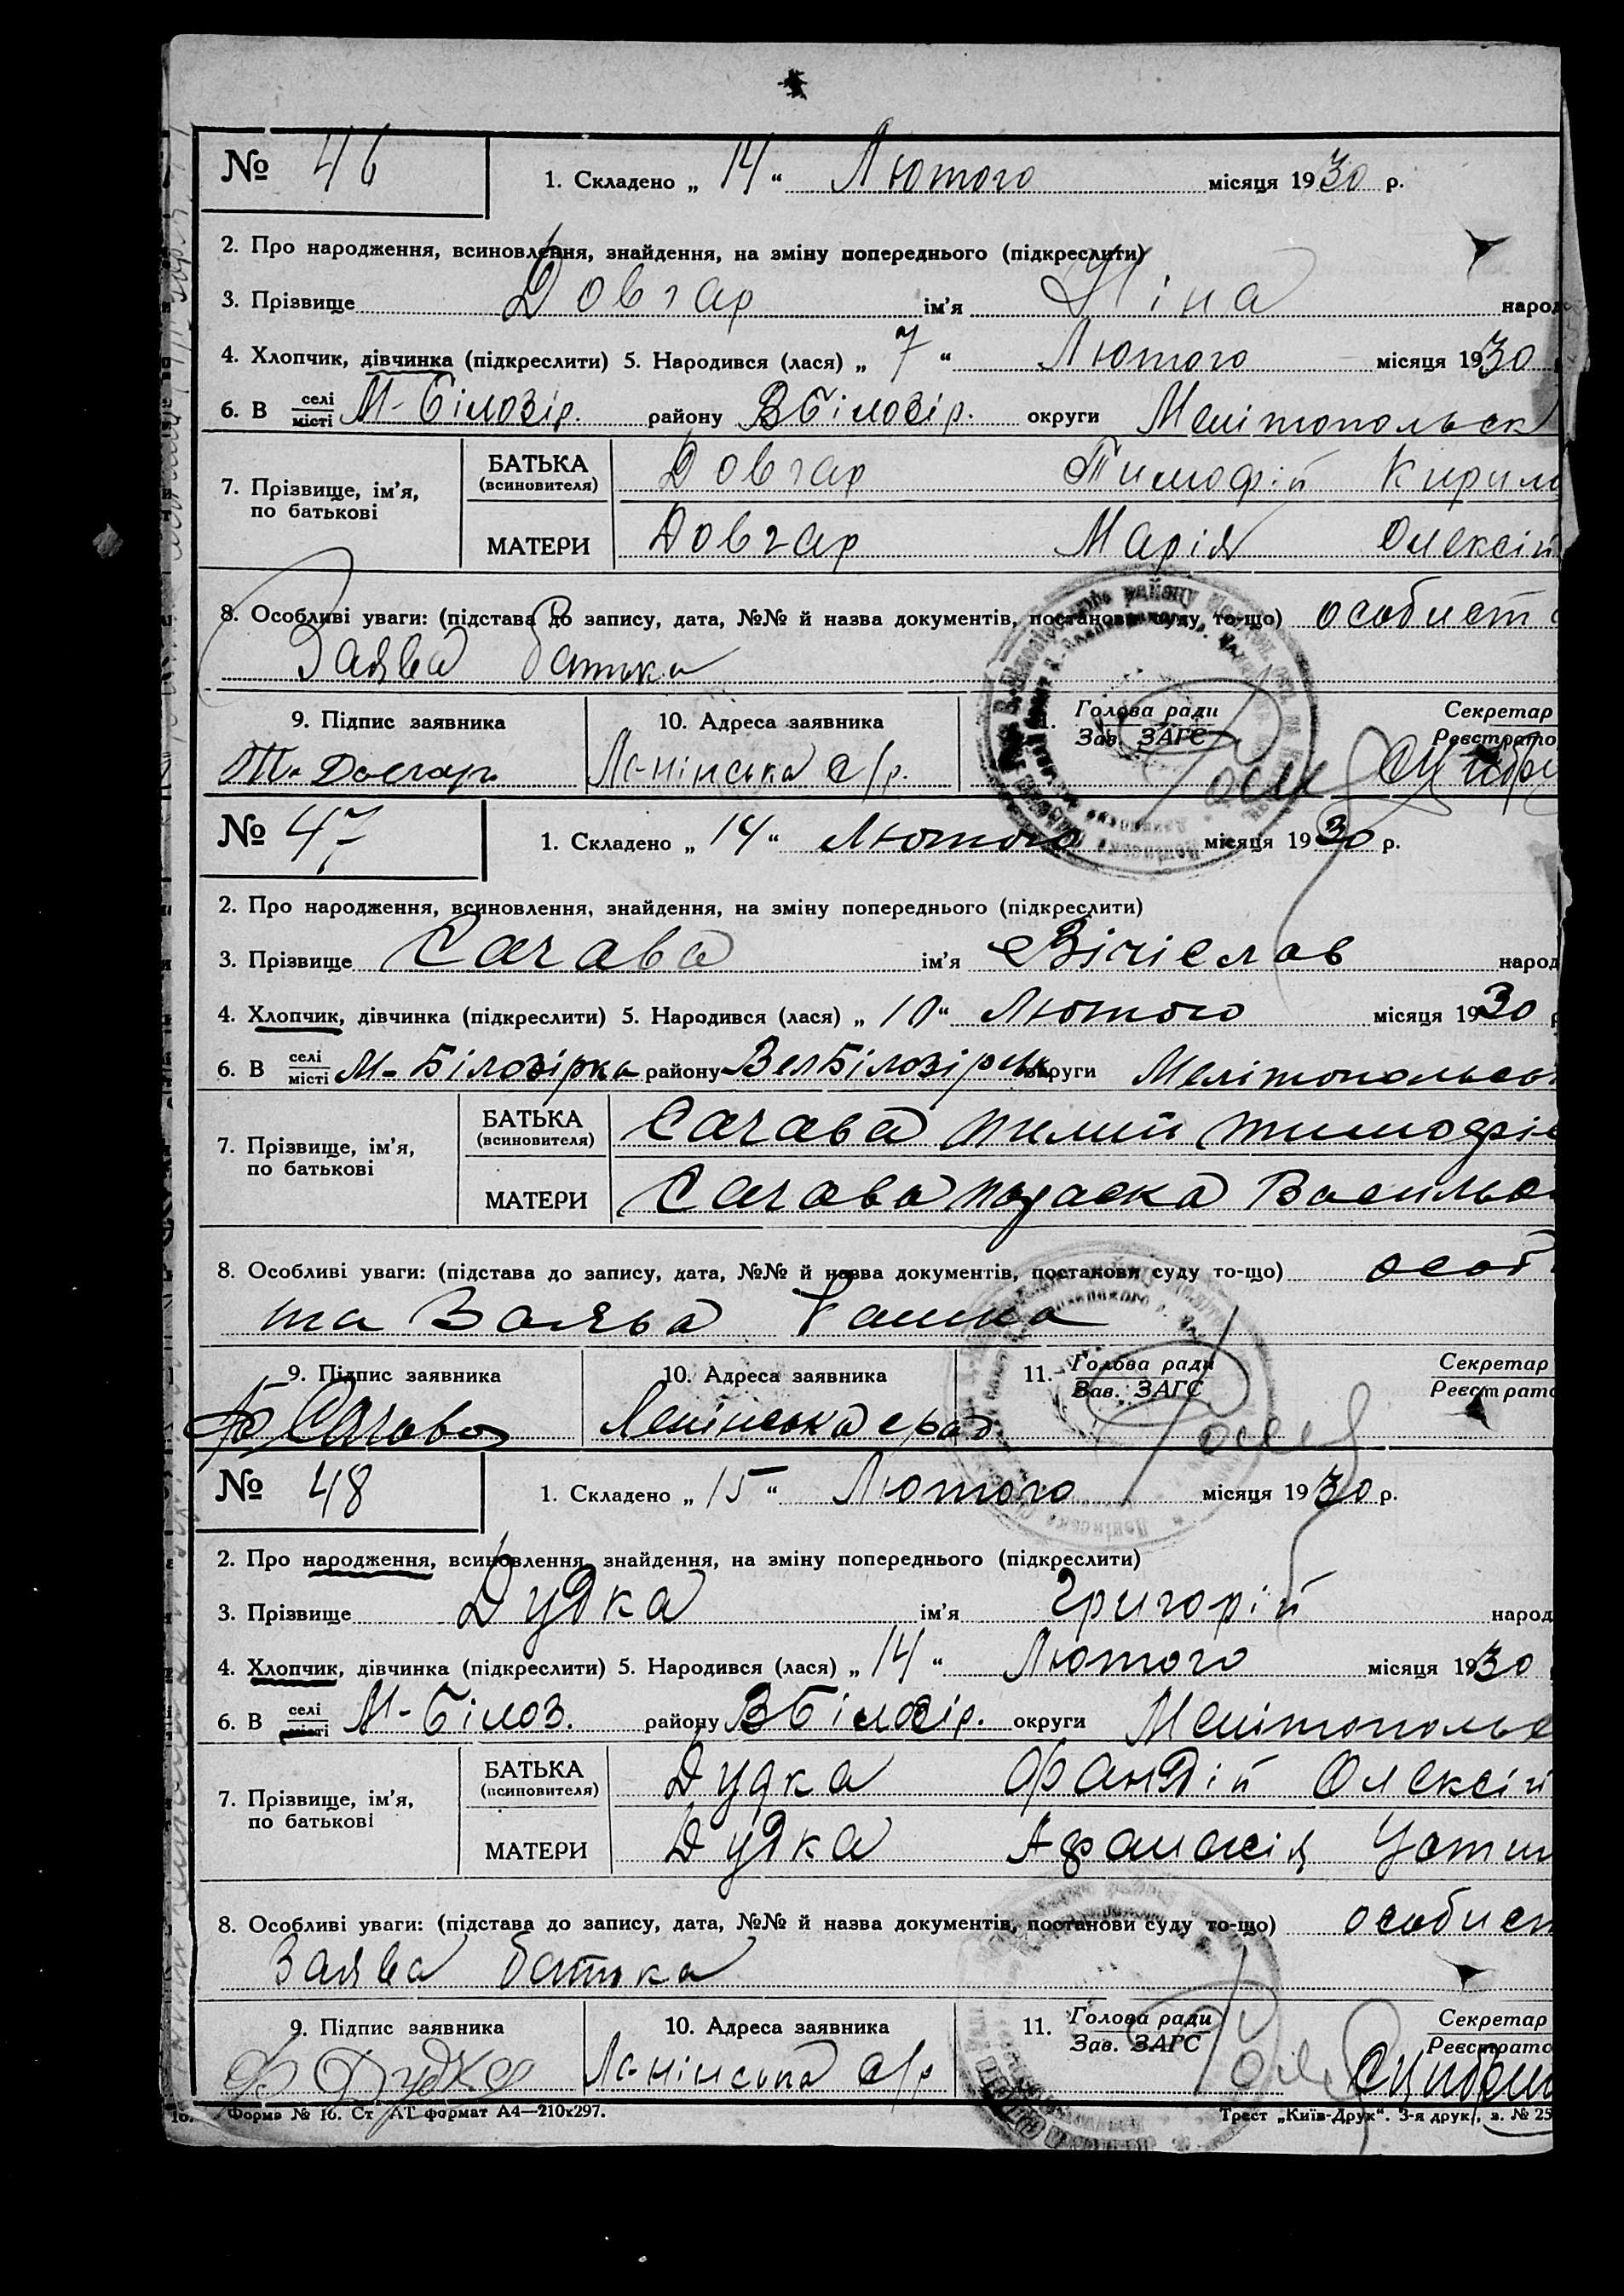 № 46 1. Складено „ 14 “ Лютого місяця 1930 р.
2. Про народження, всиновлення, знайдення, на зміну попереднього (підкреслити)
3. Прізвище Довгар ім’я Ніна народ
4. Хлопчик, дівчинка (підкреслити) 5. Народився (лася) „ 7 “ Лютого місяця 1930
6. В селі місті М-Білозір. району ВБілозір. округи Мелітопольск
7. Прізвище, ім’я, по батькові БАТЬКА (всиновителя) Довгар Тимофій Кирило
МАТЕРИ Довгар Марія Олексій
8. Особливі уваги: (підстава до запису, дата, №№ й назва документів, постанови суду, то-що) особист
Заява батька
9. Підпис заявника 10. Адреса заявника 11. Голова ради Зав. ЗАГС Секретар Реєстрато
Ленінська с/р.
№ 47 1. Складено „ 14 “ Лютого місяця 1930 р.
2. Про народження, всиновлення, знайдення, на зміну попереднього (підкреслити)
3. Прізвище Сачава ім’я Вічіслав народ
4. Хлопчик, дівчинка (підкреслити) 5. Народився (лася) „ 10 “ Лютого місяця 1930
6. В селі місті М-Білозірка району ВелБілозірськ округи Мелітопольськ
7. Прізвище, ім’я, по батькові БАТЬКА (всиновителя) Сачава Пилип Тимофіє
МАТЕРИ Сачава Параска Васильо
8. Особливі уваги: (підстава до запису, дата, №№ й назва документів, постанови суду то-що) особ
та Заява
9. Підпис заявника 10. Адреса заявника 11. Голова ради Зав. ЗАГС Секретар Реєстрато
Сачава Ленінська срад
№ 48 1. Складено „ 15 “ Лютого місяця 1930 р.
2. Про народження, всиновлення, знайдення, на зміну попереднього (підкреслити)
3. Прізвище Дудка ім’я Григорій народ
4. Хлопчик, дівчинка (підкреслити) 5. Народився (лася) „ 14 “ Лютого місяця 1930
6. В селі місті М-Білоз. району ВБілозір. округи Мелітополье
7. Прізвище, ім’я, по батькові БАТЬКА (всиновителя) Дудка Фандій Олексій
МАТЕРИ Дудка Афанасія Усти
8. Особливі уваги: (підстава до запису, дата, №№ й назва документів, постанови суду то-що) особист
Заява батька
9. Підпис заявника 10. Адреса заявника 11. Голова ради Зав. ЗАГС Секретар Реєстрато
Ф Дудка Ленінська с/р
Форма № 16. Ст АТ формат А4—210х297. Трест „Київ-Друк“. 3-я друк., з. № 25